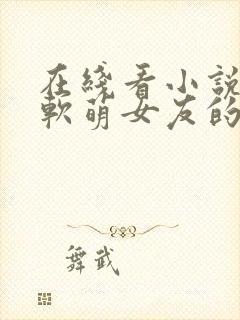 在綫看小說
軟萌女友的
舞武